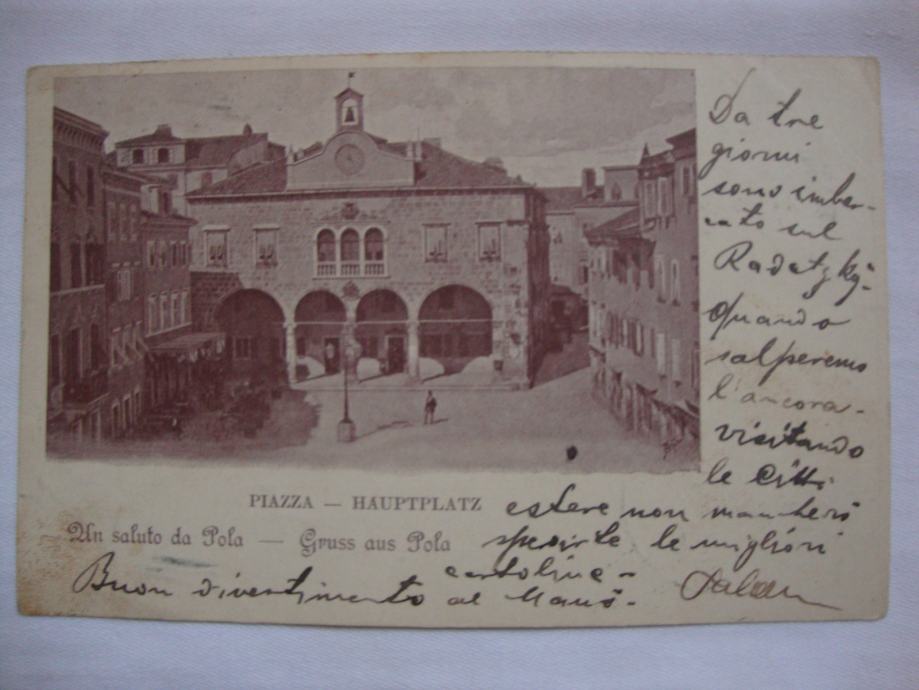 Da tre
giorni
sono imbar-
cato sul
Radetzky.
Quando
salperemo
l'ancora
visitando
le Città
estere non mancherò
spedirle le migliori
cartoline -
Buon divertimento al
PIAZZA — HAUPTPLATZ
Un saluto da Pola — Gruss aus Pola